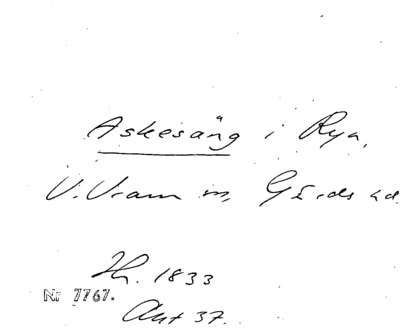 Askesäng i Rya,
V. Vram sn, Gärds hd
Th. 1833
Nr 7767.
Akt 37.